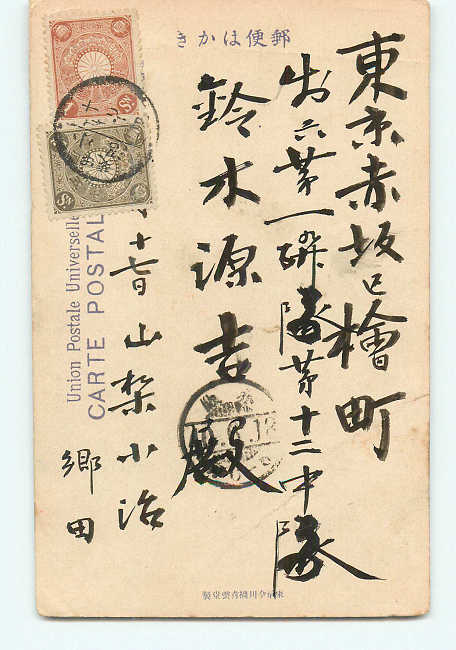 郵便はかき
東京赤坂区檜町
歩兵第一聯隊第十二中隊
鈴木源吉殿
山梨小治
郷田
Union Postale Universelle
CARTE POSTALE
東京今川橋青雲堂製